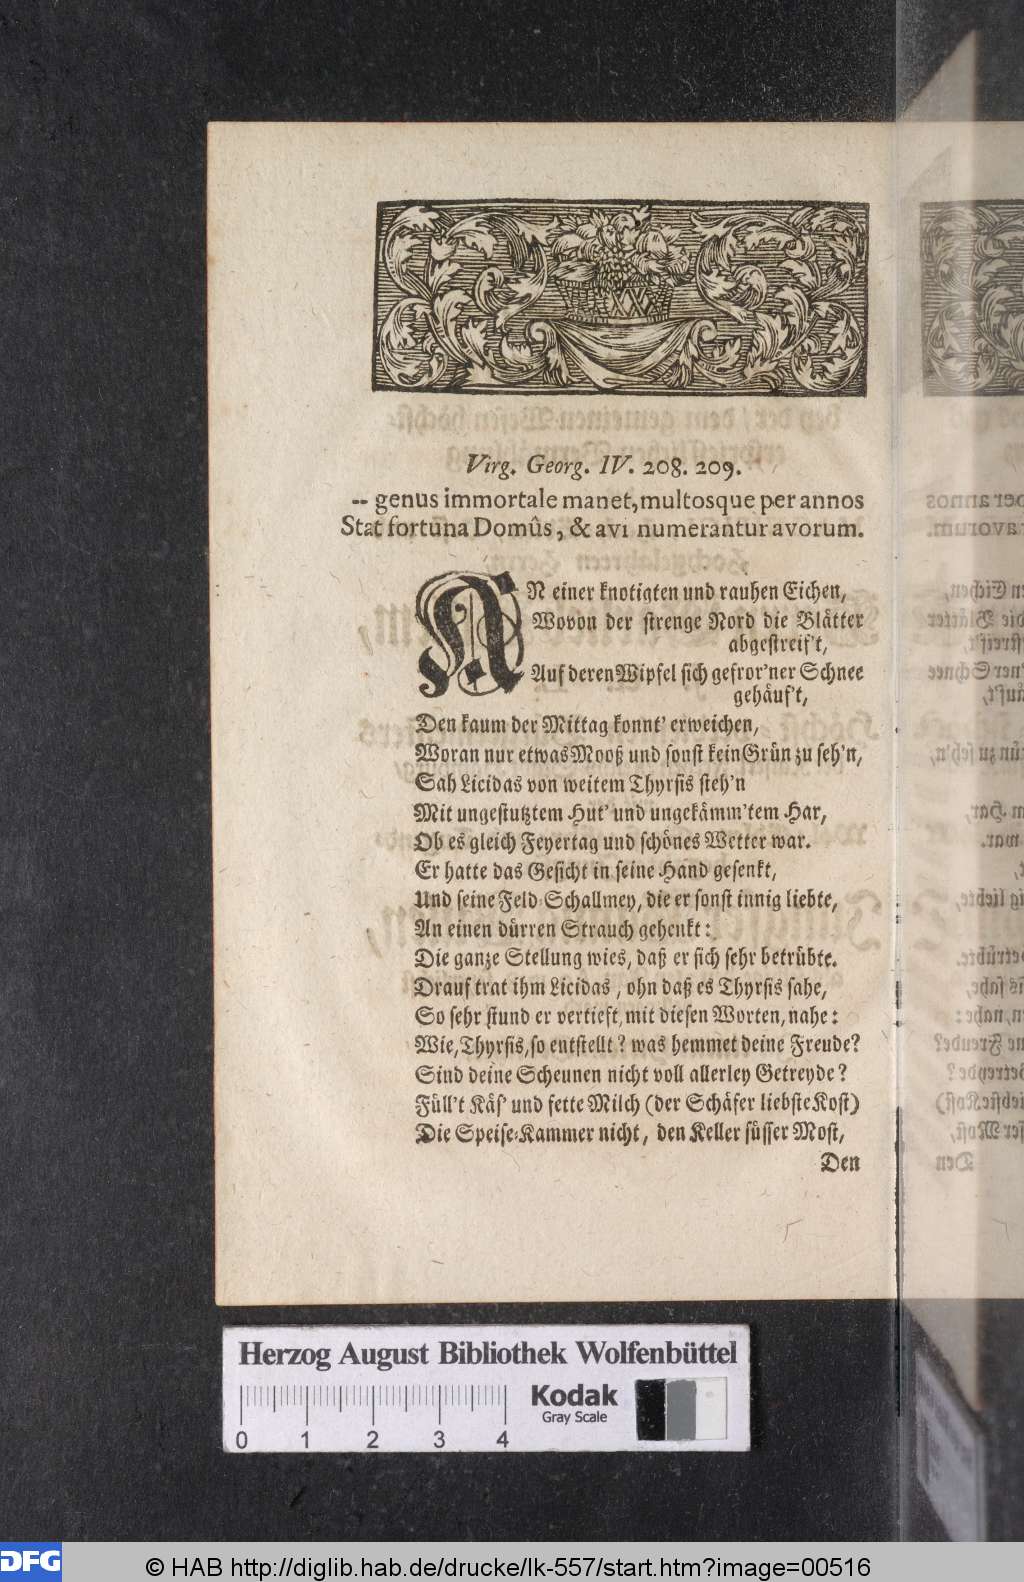 Virg. Georg. IV. 208. 209.
-- genus immortale manet, multosque per annos
Stat fortuna Domûs, & avi numerantur avorum.
AN einer knotigten und rauhen Eichen,
Wovon der strenge Nord die Blätter
abgestreif't,
Auf deren Wipfel sich gefror'ner Schnee
gehäuf't,
Den kaum der Mittag konnt' erweichen,
Woran nur etwas Mooß und sonst kein Grün zu seh'n,
Sah Licidas von weitem Thyrsis steh'n
Mit ungestutztem Hut' und ungekämm'tem Har,
Ob es gleich Feyertag und schönes Wetter war.
Er hatte das Gesicht in seine Hand gesenkt,
Und seine Feld-Schallmey, die er sonst innig liebte,
An einen dürren Strauch gehenkt:
Die ganze Stellung wies, daß er sich sehr betrübte.
Drauf trat ihm Licidas, ohn daß es Thyrsis sahe,
So sehr stund er vertieft, mit diesen Worten, nahe:
Wie, Thyrsis, so entstellt? was hemmet deine Freude?
Sind deine Scheunen nicht voll allerley Getreyde?
Füll't Käs' und fette Milch (der Schäfer liebste Kost)
Die Speise-Kammer nicht, den Keller süsser Most,
Den
Herzog August Bibliothek Wolfenbüttel
Kodak
Gray Scale
0 1 2 3 4
DFG
© HAB http://diglib.hab.de/drucke/lk-557/start.htm?image=00516